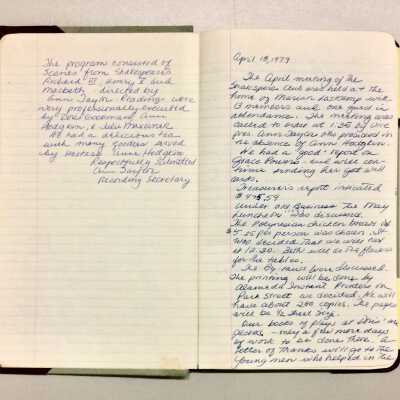 The program consisted of
Scenes from Shakespeare's
Richard III, Henry V and
Macbeth directed by
Ann Taylor. Readings were
very professionally executed
by Doris Goodman, Ann
Hodgkin, & Julie
All had a delicious tea
with many goodies served
by hostess Anne Hodgkin
Respectfully Submitted
Ann Taylor
Recording Secretary
April 18, 1979
The April meeting of the
Shakespeare Club was held at the
home of Marian with
13 members and one guest in
attendance. The meeting was
called to order at 1:25 by Vice
Pres. Ann Taylor who presided in
the absence of Ann Hodgkin.
We had a good report on
Grace and will con-
tinue sending her get well
cards.
Treasurer's report indicated
Under old Business the May
Luncheon was discussed.
The Polynesian chicken breast at
per person was chosen. It
was decided that we will eat
at 12:30. Beth will do the flowers
for the tables.
The By-laws were discussed.
The printing will be done by
Alameda Instant Printers on
Park Street we decided. We will
have about 200 copies. The paper
will be
Our books of plays at are
- only a few more days
of work to be done there. A
letter of thanks will go to the
young men who helped in the